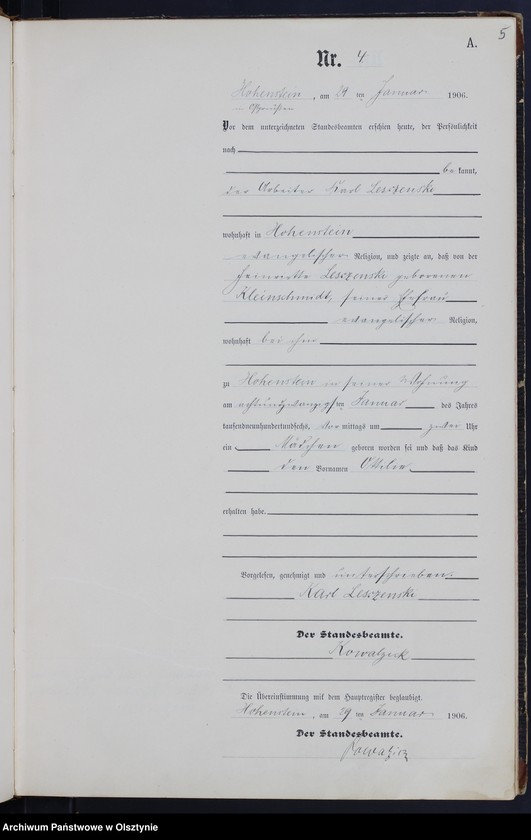 5
A.
Nr. 4
Hohenstein, am 29ten Januar 1906.
Ostpreußen
Vor dem unterzeichneten Standesbeamten erschien heute, der Persönlichkeit
nach
bekannt,
der Arbeiter Karl Leszenski
wohnhaft in Hohenstein
evangelischer Religion, und zeigte an, daß von der
Henriette Leszenski geborenen
Kleinschmidt, seiner Ehefrau
evangelischer Religion,
wohnhaft bei ihm
zu Hohenstein in seiner Wohnung
am achtundzwanzigsten Januar des Jahres
tausendneunhundertundsechs, Vormittags um Uhr
ein Mädchen geboren worden sei und daß das Kind
den Vornamen Ottilie
erhalten habe.
Vorgelesen, genehmigt und unterschrieben.
Karl Leszenski
Der Standesbeamte.
Kowalzick
Die Übereinstimmung mit dem Hauptregister beglaubigt.
Hohenstein, am 29ten Januar 1906.
Der Standesbeamte.
Kowalzick
Archiwum Państwowe w Olsztynie